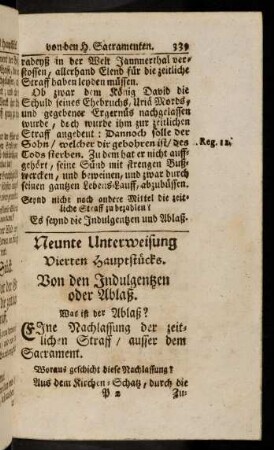 von den H. Sacramenten. 339
radeyß in der Welt Jammerthal ver-
stossen, allerhand Elend für die zeitliche
Straff haben leyden müssen.
Ob zwar dem König David die
Schuld seines Ehebruchs, Uriä Mords,
und gegebener Ergernus nachgelassen
wurde, doch wurde ihm zur zeitlichen
Straff angedeut: Dannoch solle der
Sohn / welcher dir gebohren ist / des
2. Reg. 12.
Tods sterben. Zu dem hat er nicht auff-
gehört, seine Sünd mit strengen Buß-
wercken, und beweinen, und zwar durch
seinen gantzen Lebens-Lauff, abzubüssen.
Seynd nicht noch andere Mittel die zeit-
liche Straff zu bezahlen?
Es seynd die Indulgentzen und Ablaß.
Neunte Unterweisung
Vierten Hauptstücks.
Von den Indulgentzen
oder Ablaß.
Was ist der Ablaß?
Eine Nachlassung der zeit-
lichen Straff / ausser dem
Sacrament.
Woraus geschicht diese Nachlassung?
Aus dem Kirchen-Schatz, durch die
P 2 Zu-